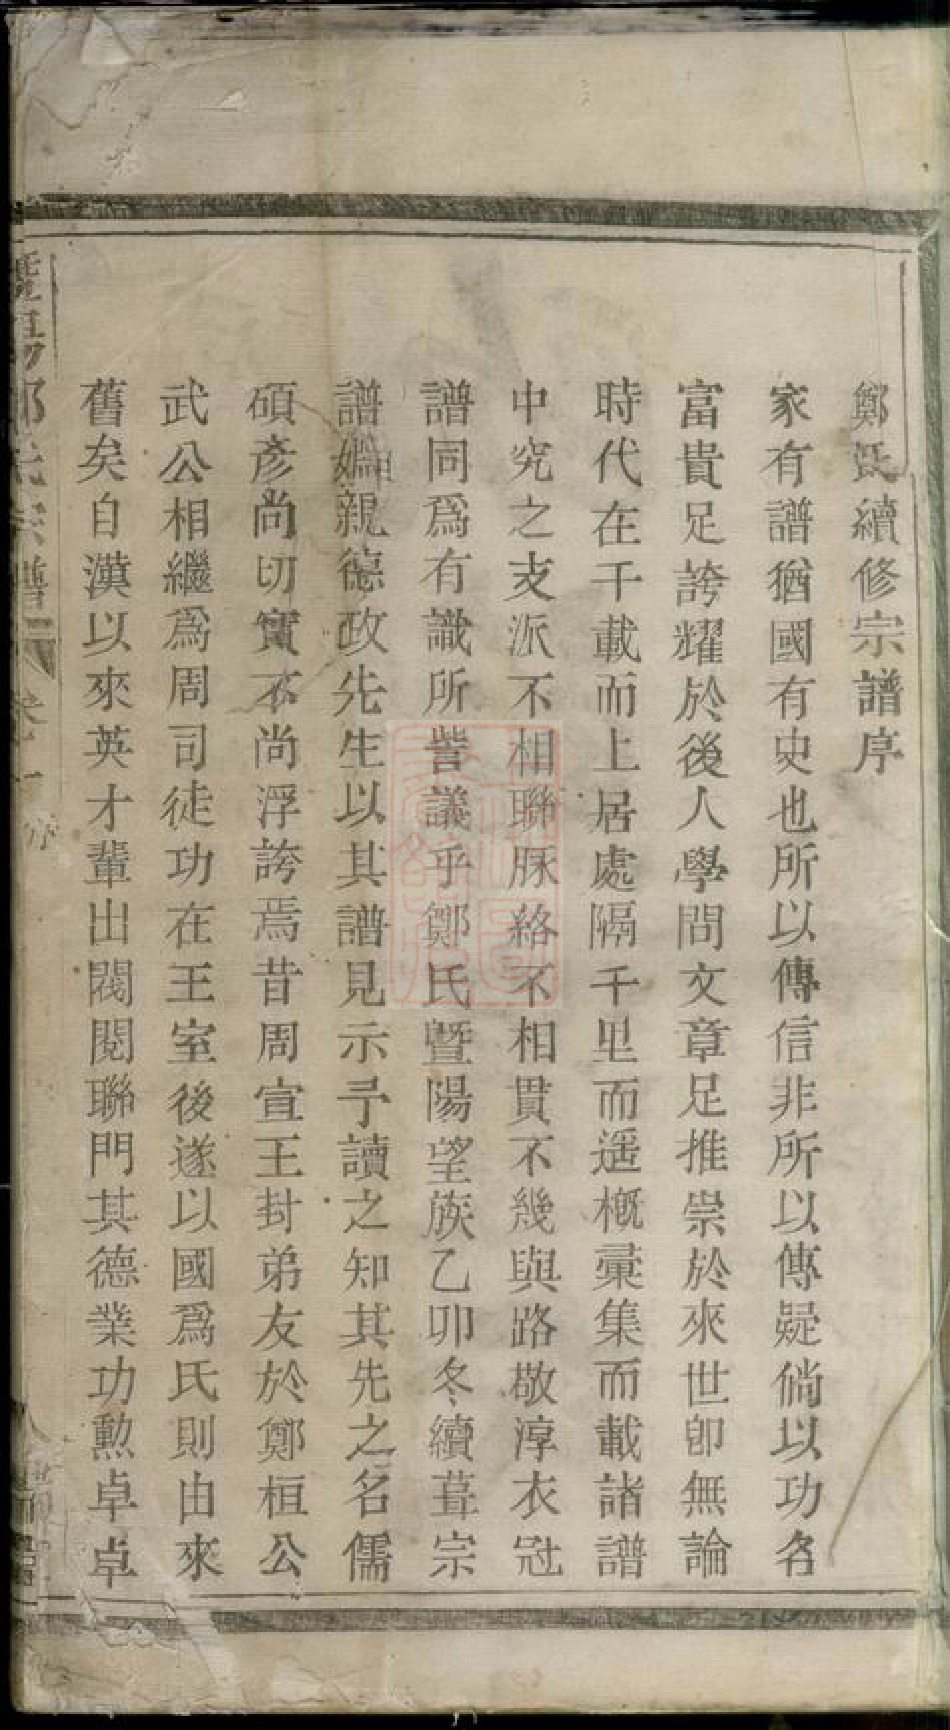 鄭氏續修宗譜序
家有譜猶國有史也所以傳信非所以傳疑倘以功名
富貴足誇耀於後人學問文章足推崇於來世卽無論
時代在千載而上居處隔千里而遥槪彚集而載諸譜
中究之支派不相聯脈絡不相貫不幾與路敬淳衣冠
譜同爲有識所訾議乎鄭氏暨陽望族乙卯冬續葺宗
譜姻親德政先生以其譜見示予讀之知其先之名儒
碩彥尚切實不尚浮誇焉昔周宣王封弟友於鄭桓公
武公相繼爲周司徒功在王室後遂以國爲氏則由來
舊矣自漢以來英才輩出閥閱聯門其德業功勲卓卓
暨陽鄭氏宗譜 卷一 序